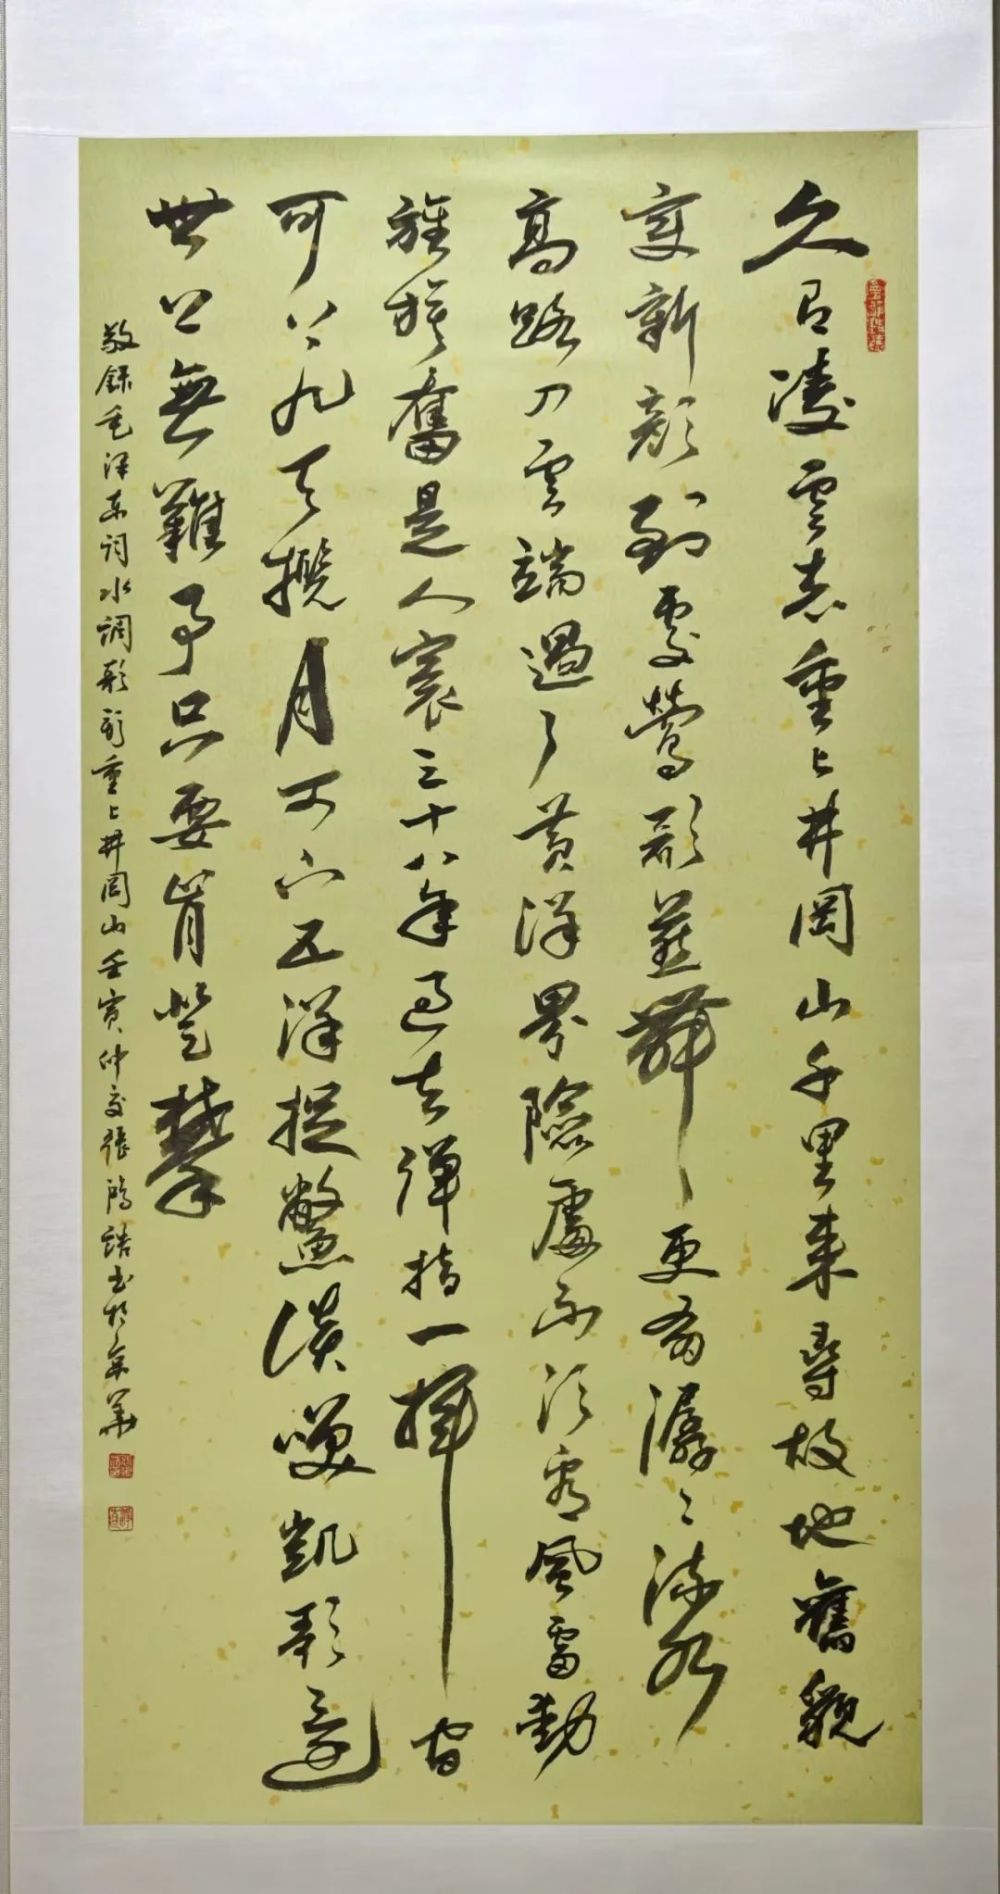 久有凌雲志重上井岡山千里來尋故地舊貌
变新顔到處鶯歌燕舞更有潺〻流水
高路入雲端過了黄洋界險處不須看風雷動
旌旗奮是人寰三十八年過去彈指一揮间
可上九天攬月可下五洋捉鱉談笑凱歌還
世上無難事只要肯登攀
敬録毛泽东词水调歌歌重上井岡山壬寅仲夏張鴻誥书於京華